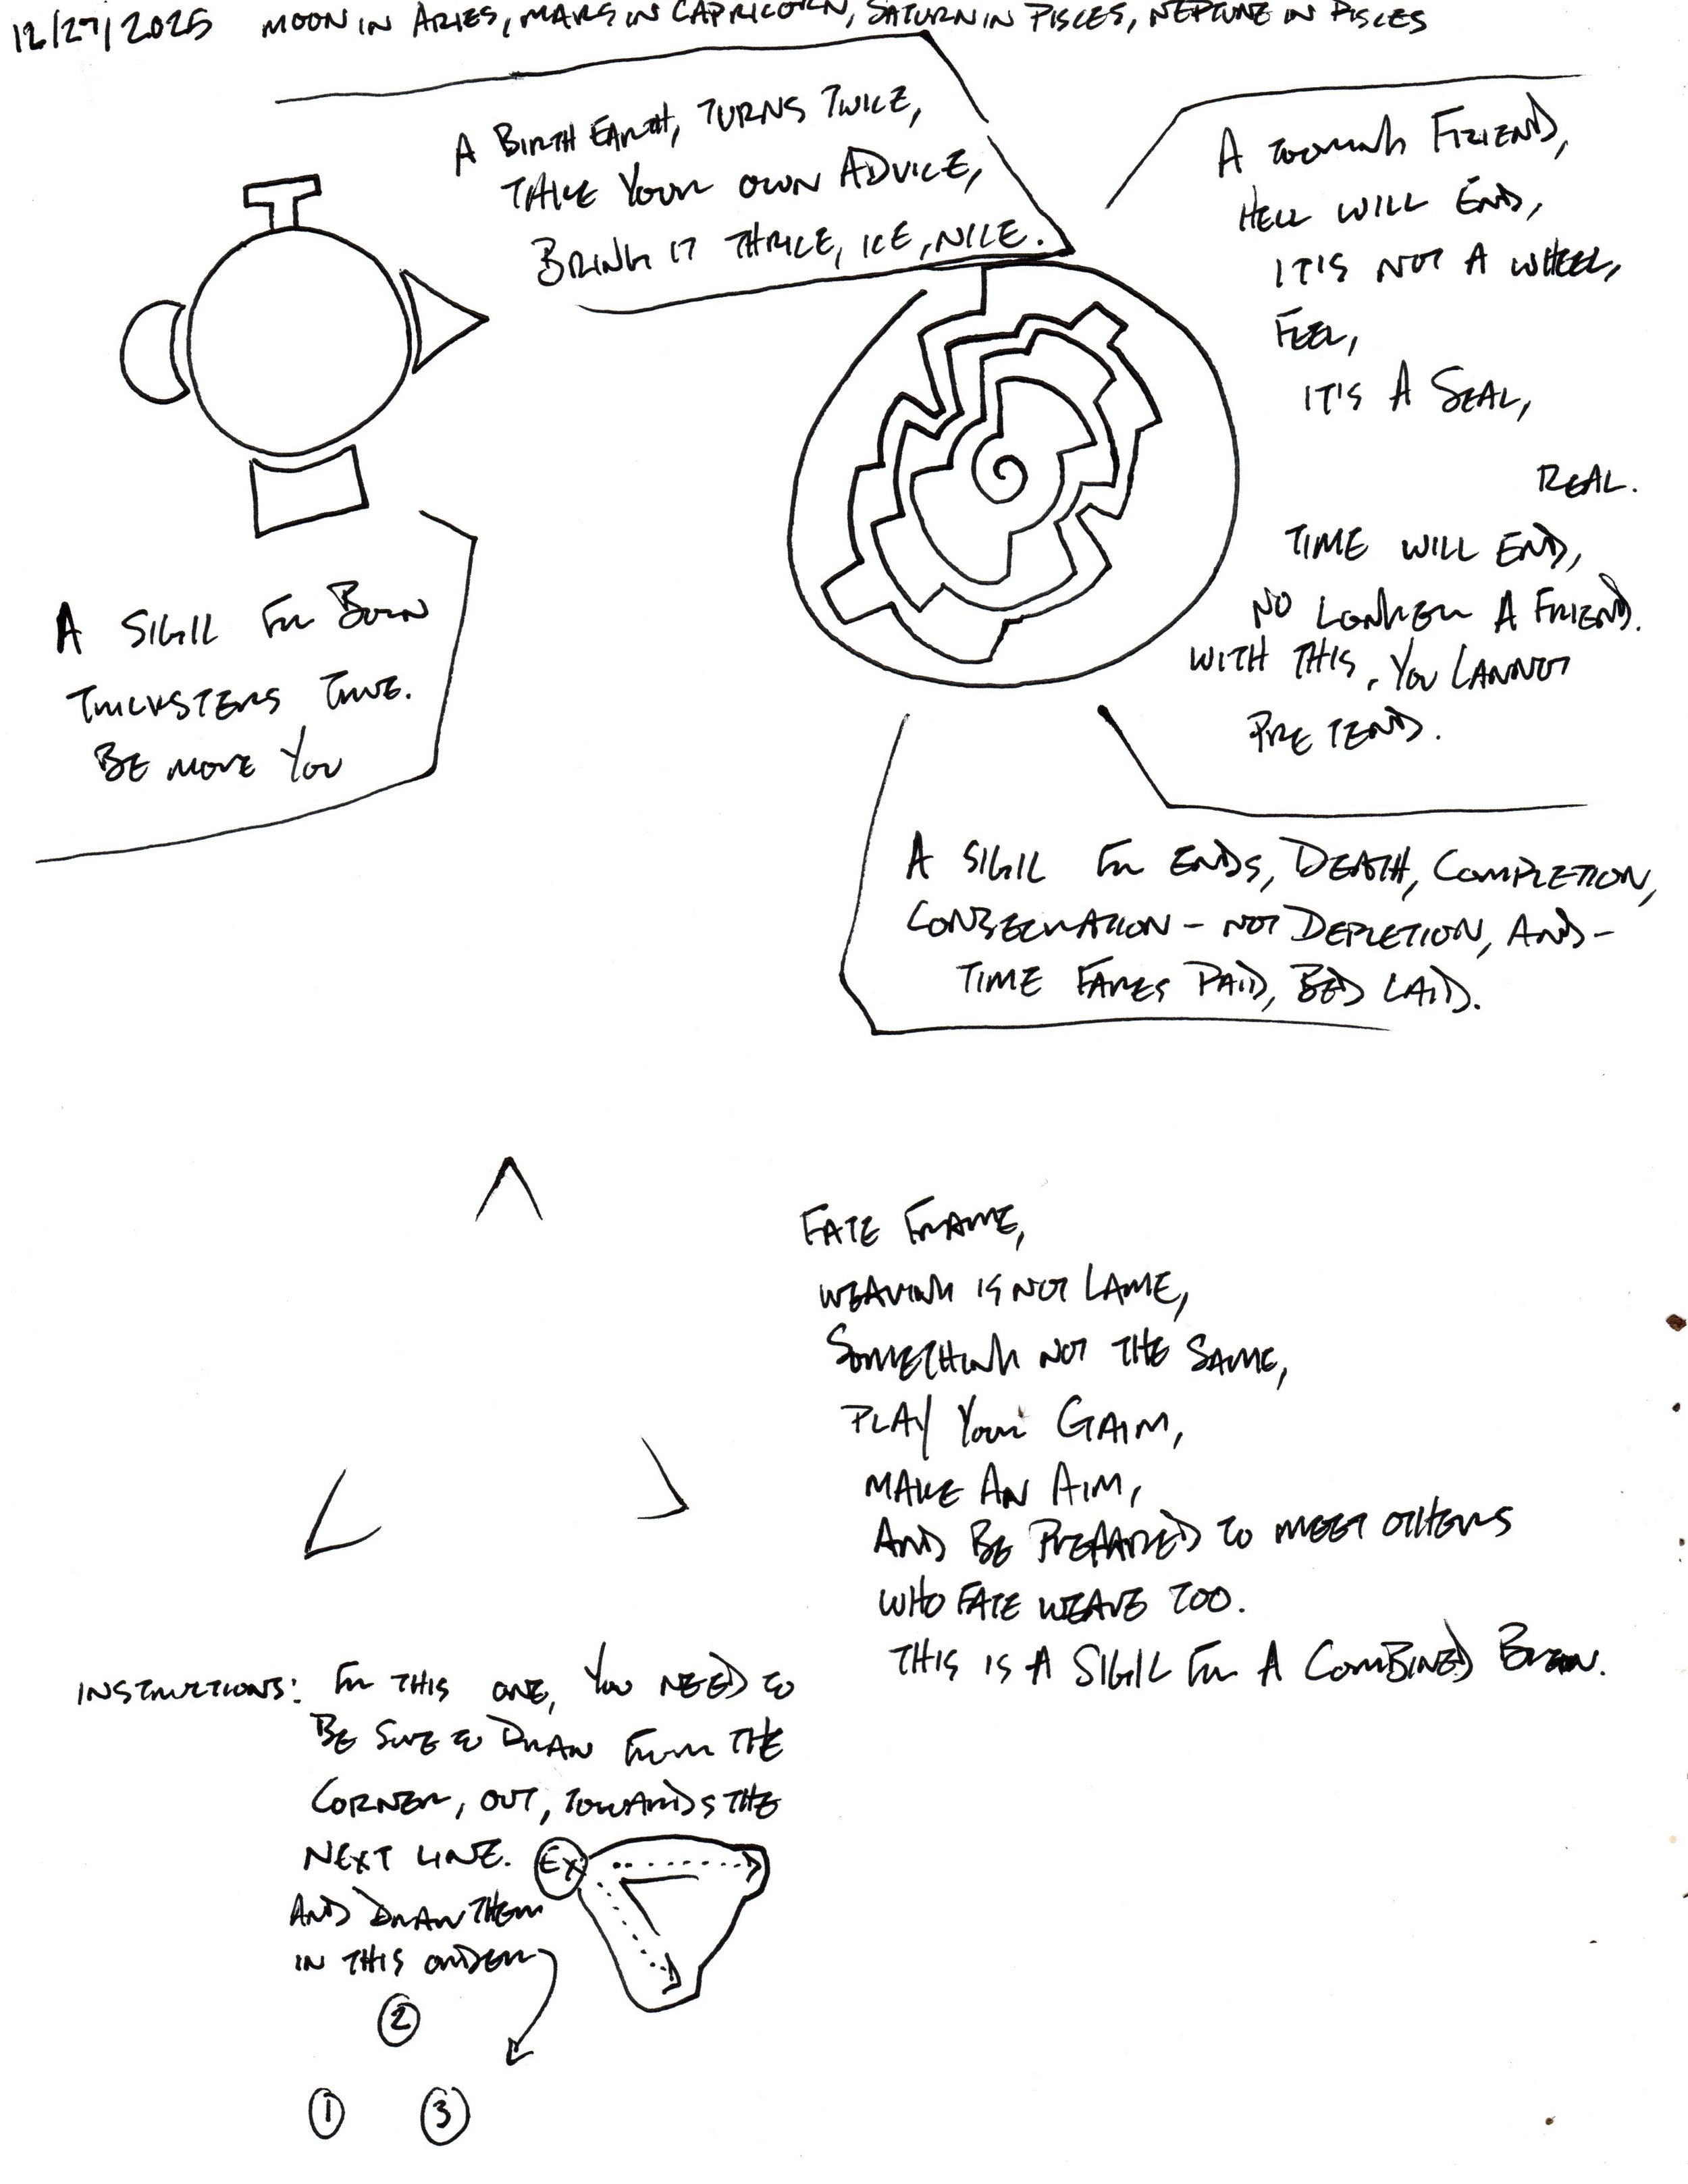 12/27/2025 MOON IN ARIES, MARS IN CAPRICORN, SATURN IN PISCES, NEPTUNE IN PISCES
A BIRTH EARTH, TURNS TWICE,
TAKE YOUR OWN ADVICE,
BRING IT THRICE, ICE, NICE.
A SIGIL FOR BORN
TRICKSTERS TRUE.
BE MORE YOU
A FRIEND,
HELL WILL END,
IT'S NOT A WHEEL,
FEEL,
IT'S A SEAL,
REAL.
TIME WILL END,
NO LONGER A FRIEND.
WITH THIS, YOU CANNOT
PRETEND.
A SIGIL FOR ENDS, DEATH, COMPLETION,
CONSECRATION - NOT DEPLETION, AND -
TIME FARES PAID, BED LAID.
FATE FRAME,
WEAVING IS NOT LAME,
SOMETHING NOT THE SAME,
PLAY YOUR GAIM,
MAKE AN AIM,
AND BE PREPARED TO MEET OTHERS
WHO FATE WEAVE TOO.
THIS IS A SIGIL FOR A COMBINED
INSTRUCTIONS: FOR THIS ONE, YOU NEED TO
BE SURE TO DRAW FROM THE
CORNER, OUT, TOWARDS THE
NEXT LINE.
EX
AND DRAW THEM
IN THIS ORDER
2
1 3